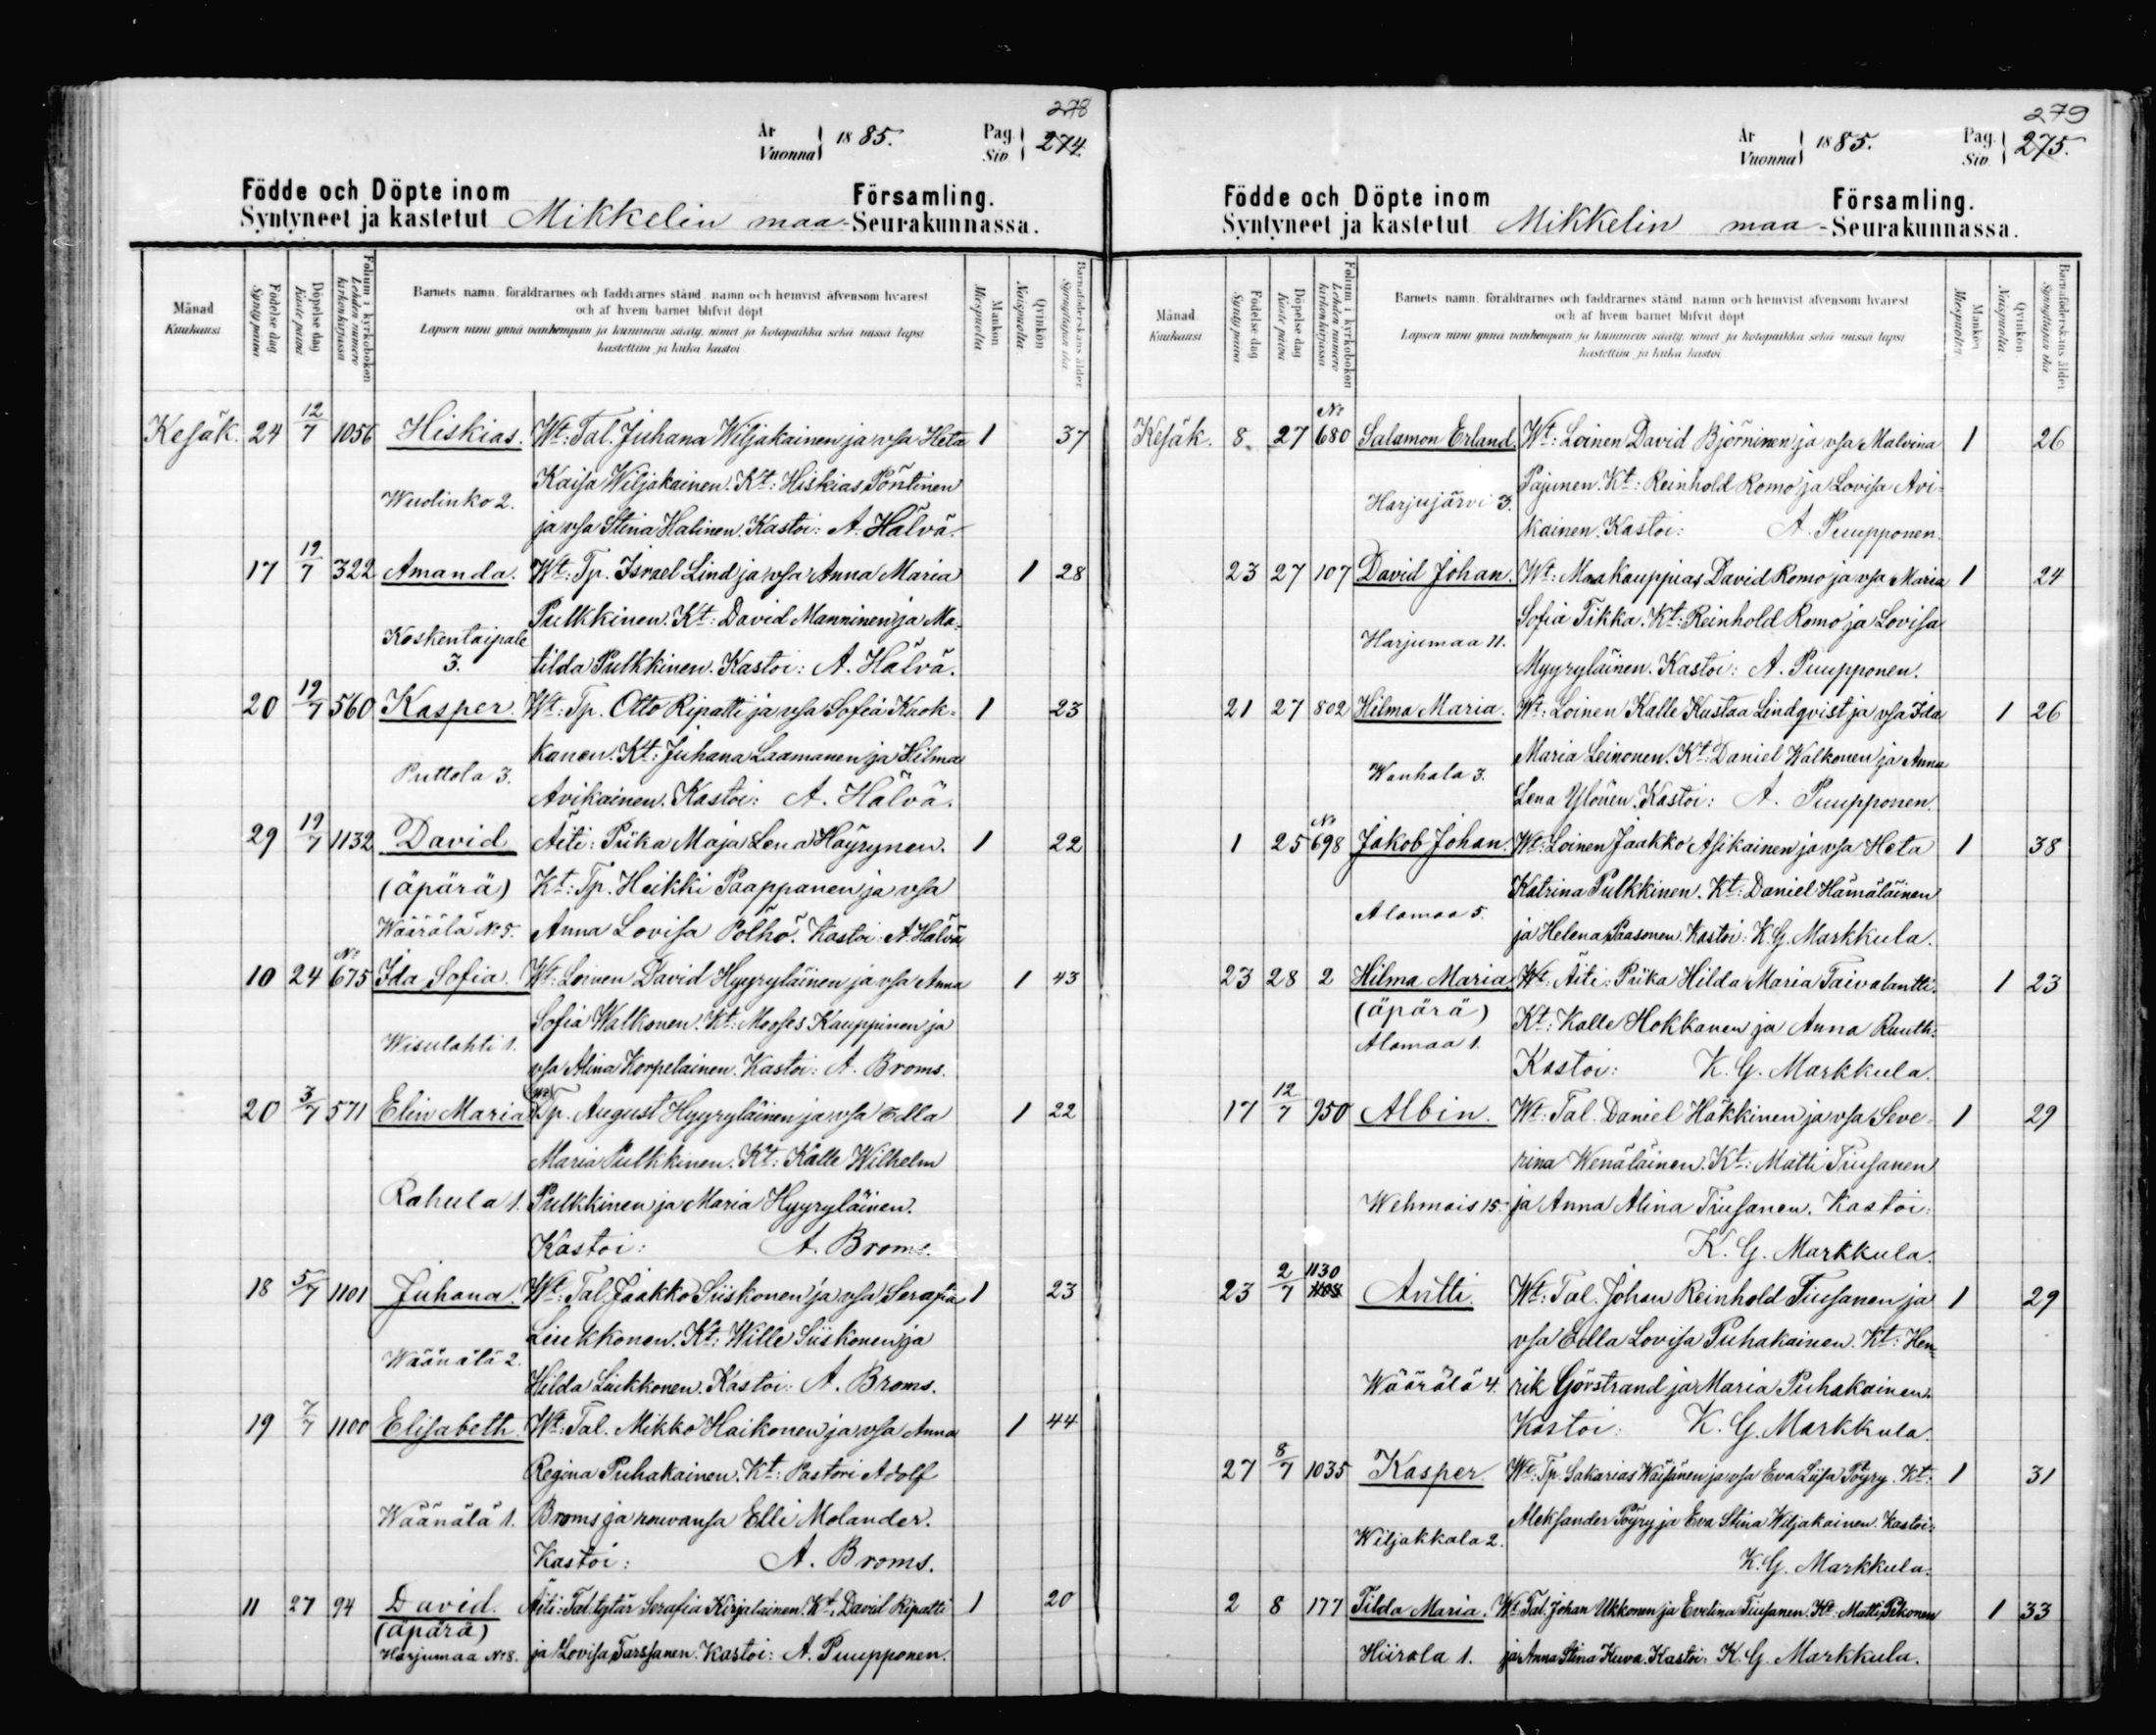 278
År
Vuonna 1885. Pag.
Siv. 274.
Födde och Döpte inom Församling.
Syntyneet ja kastetut Mikkelin maa-Seurakunnassa.
Månad
Kuukausi
Födelse dag
Synty päivä
Döpelse dag
Kaste päivä
Folium i kyrkobokon
Lehden numero
kirkonkirjassa
Barnets namn, föräldrarnes och faddrarnes stånd, namn och hemvist äfvensom hvarest
och af hvem barnet blifvit döpt
Lapsen nimi ynnä vanhempain ja kummein sääty, nimet ja kotopaikka sekä missä lapsi
kastettiin ja kuka kastoi
Mankön
Miespuolta
Qvinkön
Naispuolta
Barnaföderskans ålder
Synnyttäjän ikä
Kesäk. 24 12/7 1056 Hiskias. Wt: Tal. Juhana Wiljakainen ja vsa Heta 1 37
Kaisa Wiljakainen. Kt: Hiskias Pöntinen
Wuolinko 2.
ja vsa Stina Halinen. Kastoi: A. Hälvä.
17 19/7 322 Amanda. Wt: Tp. Israel Lind ja vsa Anna Maria 1 28
Pulkkinen. Kt: David Manninen ja Ma-
Koskentaipale
3. tilda Pulkkinen. Kastoi: A. Hälvä.
20 19/7 560 Kasper. Wt: Tp. Otto Ripatti ja vsa Sofia Kuok- 1 23
kanen. Kt: Juhana Laamanen ja Hilma
Puttola 3.
Avikainen. Kastoi: A. Hälvä.
29 19/7 1132 David Äiti: Piika Maja Lena Häyrynen. 1 22
(äpärä) Kt: Tp. Heikki Paappanen ja vsa
Wäärälä No 5. Anna Lovisa Pölhö. Kastoi: A. Hälvä
10 24 No 675 Ida Sofia. Wt: Loinen David Hyyryläinen ja vsa Anna 1 43
Sofia Walkonen. Kt: Mooses Kauppinen ja
Wisulahti 1.
vsa Alina Korpelainen. Kastoi: A. Broms.
20 3/7 571 Elin Maria Tp. August Hyyryläinen ja vsa Edla 1 22
Maria Pulkkinen. Kt: Kalle Wilhelm
Rahula 1. Pulkkinen ja Maria Hyyryläinen.
Kastoi: A. Broms.
18 5/7 1101 Juhana. Wt: Tal. Jaakko Siiskonen ja vsa Serafia 1 23
Liukkonen. Kt: Wille Siiskonen ja
Wäänälä 2.
Hilda Liukkonen. Kastoi: A. Broms.
19 7/7 1100 Elisabeth. Wt: Tal. Mikko Haikonen ja vsa Anna 1 44
Regina Puhakainen. Kt: Pastori Adolf
Wäänälä 1. Broms ja rouvansa Elli Molander.
Kastoi: A. Broms.
11 27 94 David. Äiti: Tal. tytär Serafia Kirjalainen. Kt: David Ripatti 1 20
(äpärä)
Harjumaa No 8. ja Lovisa Tarssanen. Kastoi: A. Puupponen.
279
År
Vuonna 1885. Pag.
Siv. 275.
Födde och Döpte inom Församling.
Syntyneet ja kastetut Mikkelin maa-Seurakunnassa.
Månad
Kuukausi
Födelse dag
Synty päivä
Döpelse dag
Kaste päivä
Folium i kyrkobokon
Lehden numero
kirkonkirjassa
Barnets namn, föräldrarnes och faddrarnes stånd, namn och hemvist äfvensom hvarest
och af hvem barnet blifvit döpt
Lapsen nimi ynnä vanhempain ja kummein sääty, nimet ja kotopaikka sekä missä lapsi
kastettiin ja kuka kastoi
Mankön
Miespuolta
Qvinkön
Naispuolta
Barnaföderskans ålder
Synnyttäjän ikä
Kesäk. 8. 27 No 680 Salamon Erland. Wt: Loinen David Björninen ja vsa Malvina 1 26
Pajunen. Kt: Reinhold Romo ja Lovisa Avi-
Harjujärvi 3.
kainen. Kastoi: A. Puupponen.
23 27 107 David Johan. Wt: Maakauppias David Romo ja vsa Maria 1 24
Sofia Tikka. Kt: Reinhold Romo ja Lovisa
Harjumaa 11.
Myyryläinen. Kastoi: A. Puupponen.
21 27 802 Hilma Maria. Wt: Loinen Kalle Kustaa Lindqvist ja vsa Ida 1 26
Maria Leinonen. Kt: Daniel Walkonen ja Anna
Wanhala 3.
Lena Ylönen. Kastoi: A. Puupponen.
1 25 No 698 Jakob Johan. Wt: Loinen Jaakko Asikainen ja vsa Heta 1 38
Katrina Pulkkinen. Kt: Daniel Hämäläinen
Alamaa 5.
ja Helena Paasonen. Kastoi: K. G. Markkula.
23 28 2 Hilma Maria. Wt: Äiti: Piika Hilda Maria Taivalantti. 1 23
(äpärä) Kt: Kalle Hokkanen ja Anna Ruuth.
Alamaa 1.
Kastoi: K. G. Markkula.
17 12/7 950 Albin. Wt: Tal. Daniel Häkkinen ja vsa Seve- 1 29
rina Wenäläinen. Kt: Matti Tiusanen
Wehmais 15. ja Anna Alina Tiusanen. Kastoi:
K. G. Markkula.
23 2/7 1130 1108 Antti. Wt: Tal. Johan Reinhold Tiusanen ja 1 29
vsa Edla Lovisa Puhakainen. Kt: Hen-
Wäärälä 4. rik Görstrand ja Maria Puhakainen.
Kastoi: K. G. Markkula.
27 8/7 1035 Kasper Wt: Tp. Sakarias Wäisänen ja vsa Eva Liisa Pöyry. Kt: 1 31
Aleksander Pöyry ja Eva Stina Wiljakainen. Kastoi:
Wiljakkala 2.
K. G. Markkula.
2 8 177 Tilda Maria. Wt: Tal. Johan Ukkonen ja Evelina Tiusanen. Kt: Matti Pikonen 1 33
Hiirola 1. ja Anna Stina Kuva. Kastoi: K. G. Markkula.